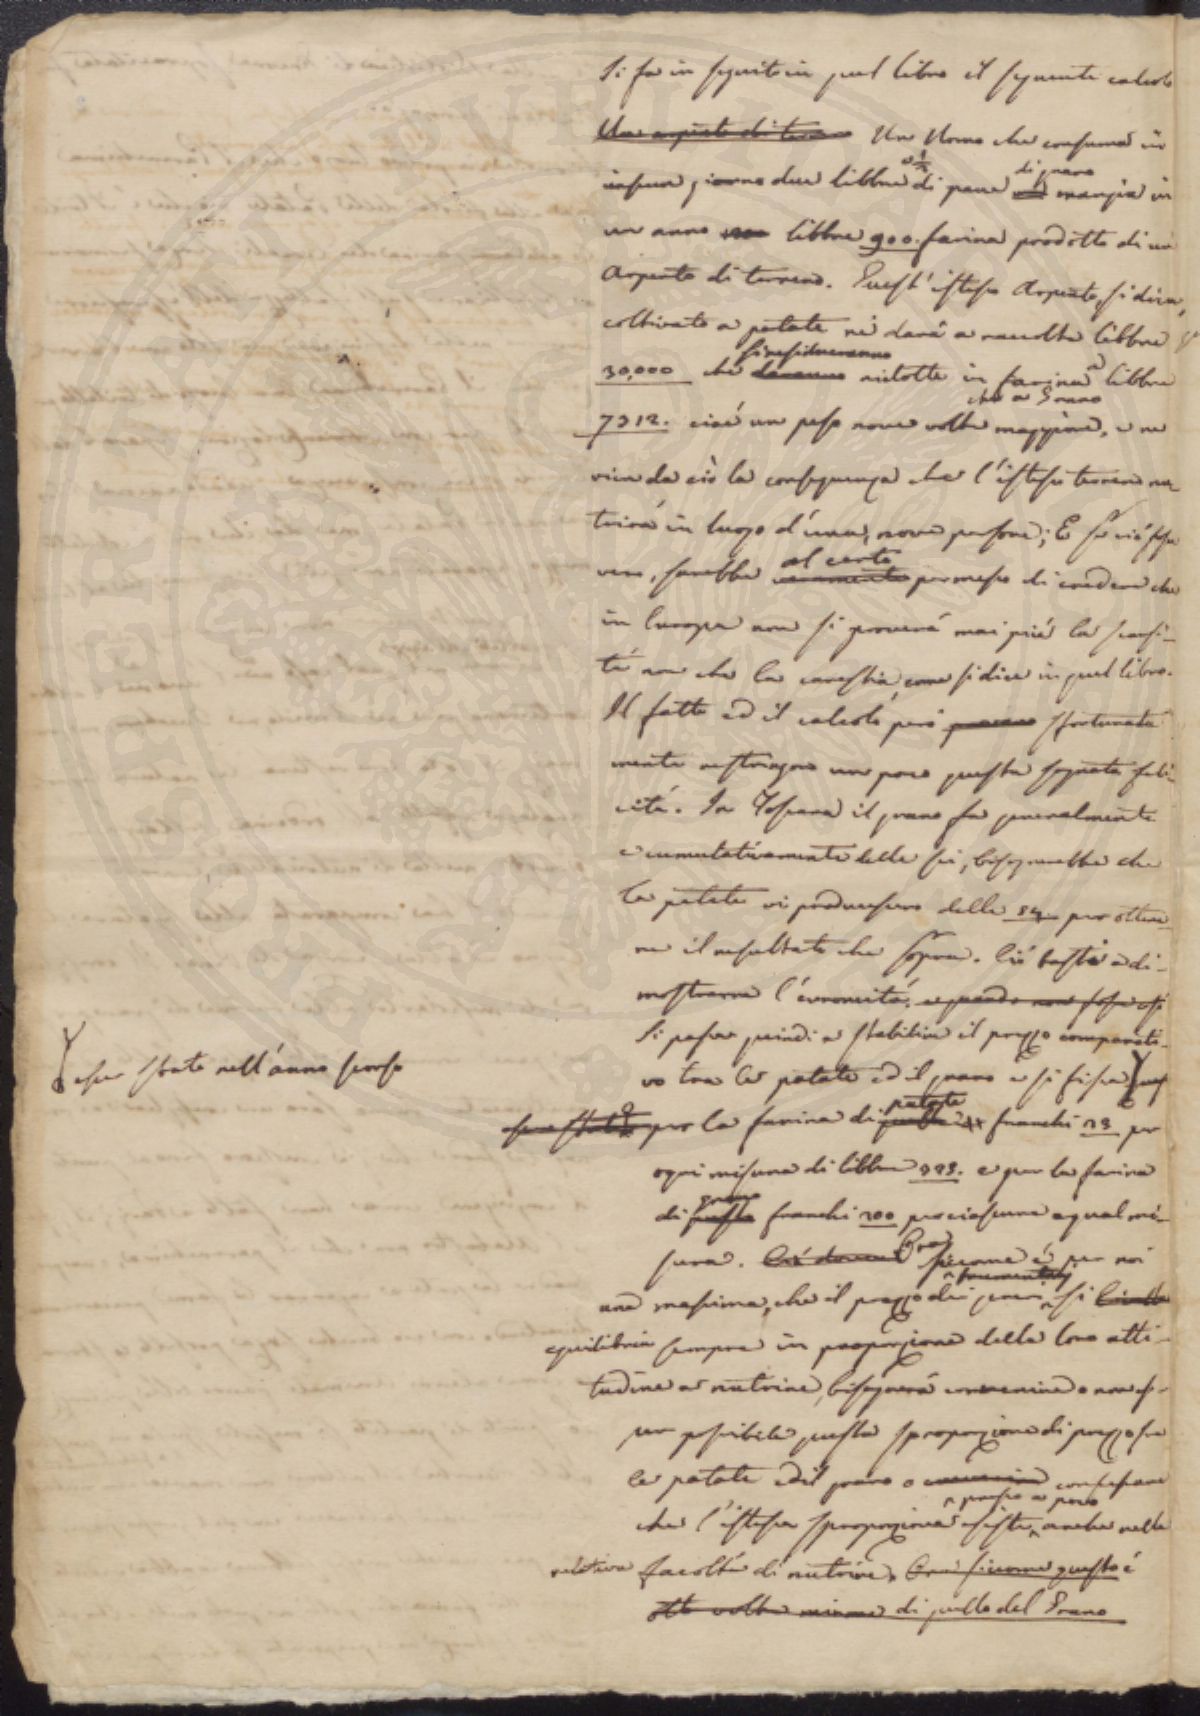 Si fa in seguito in quel libro il seguente calcolo
Un arpento di terra Un Uomo che consuma in
ciascun giorno due libbre e ½ di pane di grano mangia in
un anno libbre 900. farina prodotte di un
Arpento di terreno. Quest'istesso Arpento, si dice,
coltivato a patate ne darà a raccolta libbre
30,000 che si residueranno daranno ridotte in farina a libbre
7312. cioè un peso nove volte maggiore, che a Grano e ne
viene da ciò la conseguenza che l'istesso terreno nu-
trirà in luogo d'una, nove persone; E se ciò fosse
vero, sarebbe al certo veramente permesso di credere che
in Europa non si proverà mai più la scarsi-
tà non che la carestia, come si dice in quel libro.
Il fatto ed il calcolo però sfortunata
mente restringono un poco questa sognata feli-
cità. In Toscana il grano fa generalmente
e cumulativamente delle sei, bisognerebbe che
le patate vi producessero delle 54 per ottene-
re il resultato che sopra. Ciò basti a di-
mostrarne l'erroneità. e quando non fosse così
Si passa quindi a stabilire il prezzo comparati-
vo tra le patate ed il grano e si fissa
esser stato nell'anno scorso
per la farina di patate franchi 23 per
ogni misura di libbre 323. e per la farina
di grano franchi 200 per ciascuna egual mi-
sura. Ciò Ora siccome è per noi
una massima, che il prezzo dei generi frumentarj si livella
equilibria sempre in proporzione della loro atti-
tudine a nutrire, bisognerà convenire o non es-
ser possibile questa sproporzione di prezzo fra
le patate ed il grano o confessare
che l'istessa sproporzione esiste a presso a poco anche nella
relativa facoltà di nutrire. Ora siccome questo è
otto volte minore di quello del Grano